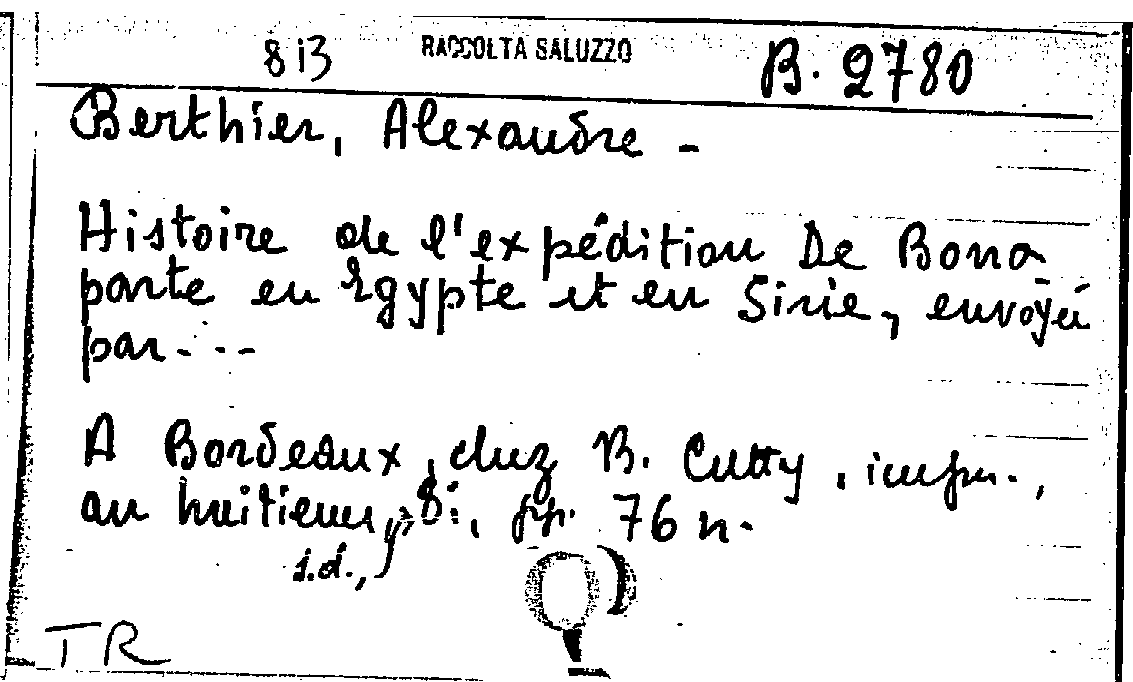 813 RACCOLTA SALUZZO B. 2780
Berthier, Alexandre -
Histoire de l'expédition De Bona-
parte en Egypte et en Sirie, envoyée
par...
A Bordeaux, chez B. Cutty, impr.,
an huitieme, 8:, pp. 76 n.
s.d.,
TR